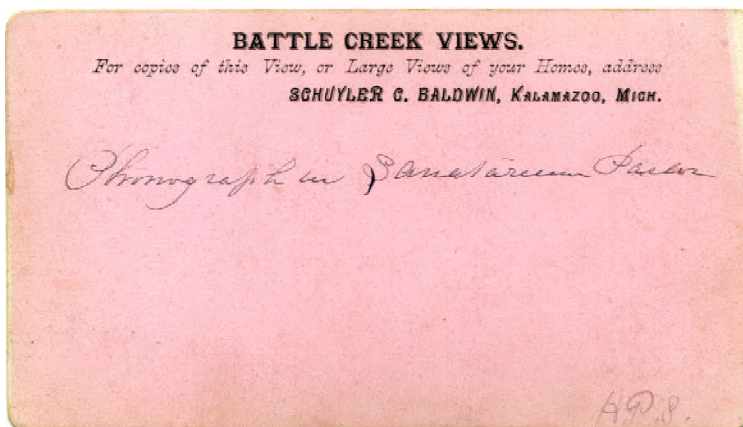 BATTLE CREEK VIEWS.
For copies of this View, or Large Views of your Homes, address
SCHUYLER C. BALDWIN, KALAMAZOO, MICH.
Phonograph in Sanatarium Parlor
H.P.S.